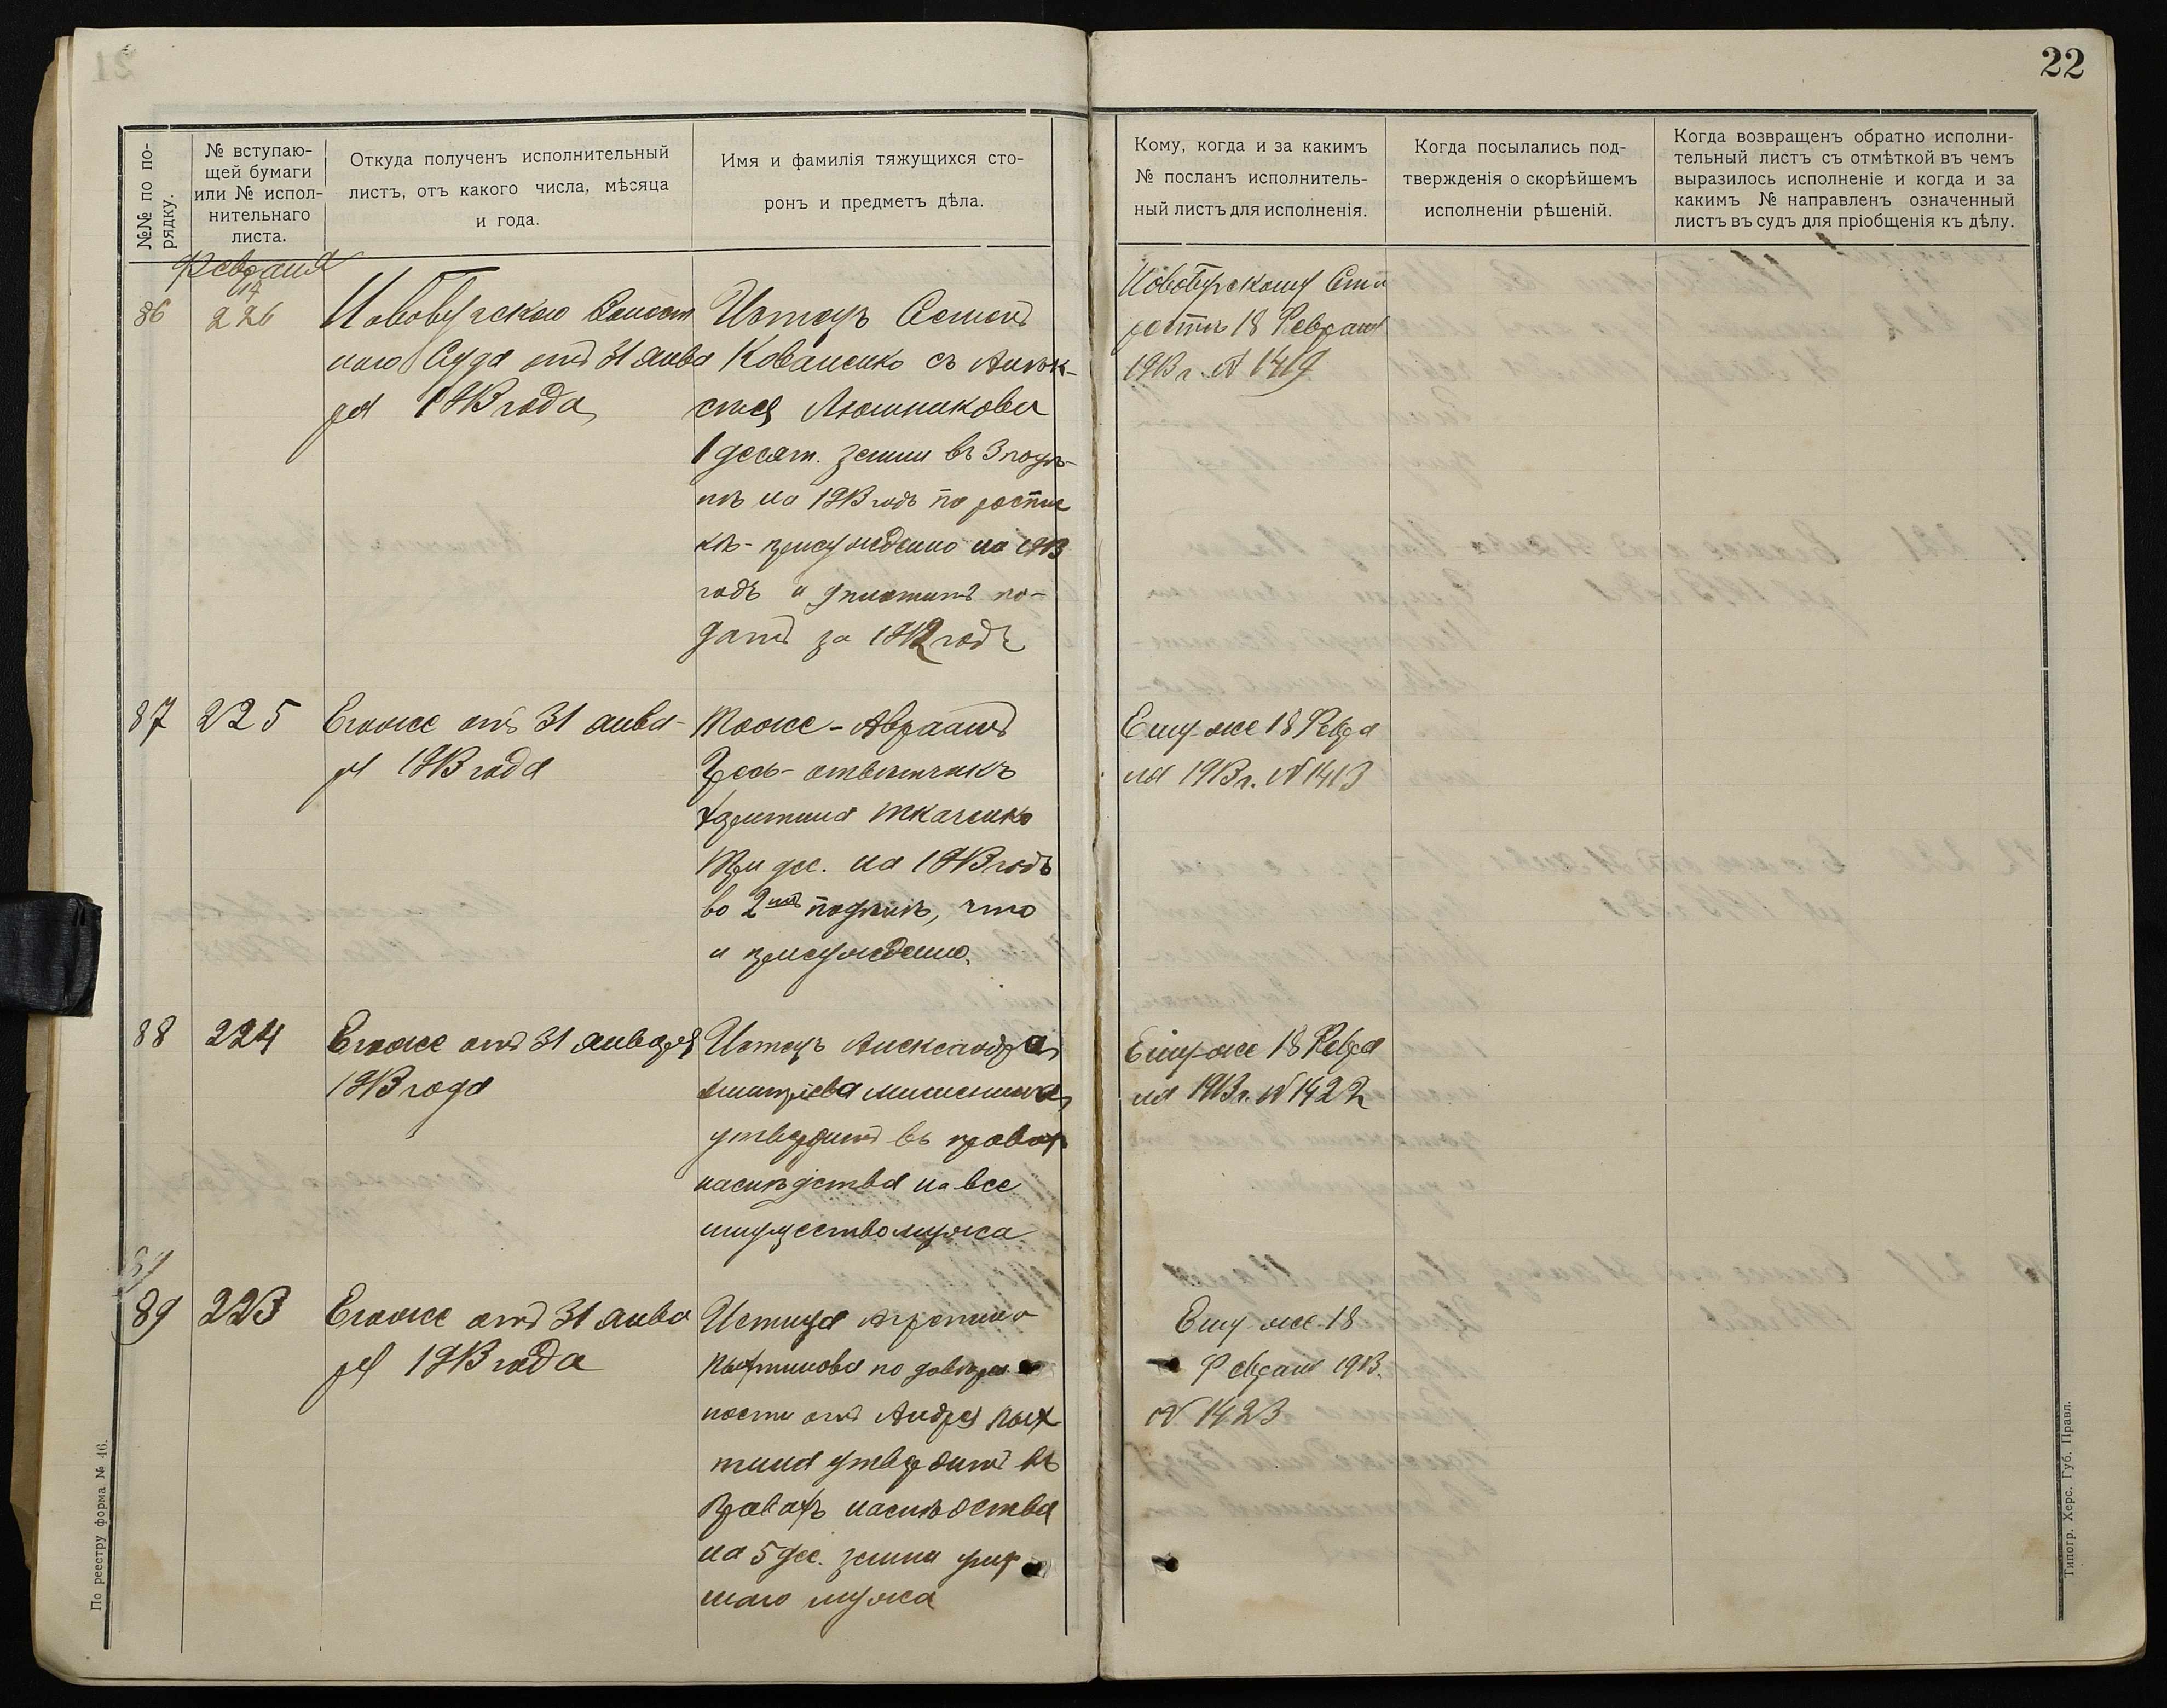 22
№№ по по-
рядку.
№ вступаю-
щей бумаги
или № испол-
нительнаго
листа.
Откуда полученъ исполнительный
листъ, отъ какого числа, мѣсяца
и года.
Имя и фамилія тяжущихся сто-
ронъ и предметъ дѣла.
Кому, когда и за какимъ
№ посланъ исполнитель-
ный листъ для исполненія.
Когда посылались под-
твержденія о скорѣйшемъ
исполненіи рѣшеній.
Когда возвращенъ обратно исполни-
тельный листъ съ отмѣткой въ чемъ
выразилось исполненіе и когда и за
какимъ № направленъ означенный
листъ въ судъ для пріобщенія къ дѣлу.
Февраля
14
86
226
Новобугскаго Волост
наго Суда отъ 31 Янва
ря 1913 года
Истецъ Семенъ
Коваленко съ Алек-
1 десят. земли въ 3 подѣ-
лѣ на 1913 годъ по роспис
кѣ - присуждено на 1913
годъ и уплатитъ по-
датъ за 1912 годъ
Новобугскому Ста
ростѣ 18 Февраля
1913 г. № 1419
87
225
Егоже отъ 31 янва-
ря 1913 года
Тоже - Авраамъ
отвѣтчикъ
Ткаченко
Три дес. на 1913 годъ
во 2мъ подѣлѣ, что
и присуждено.
Ему-же 18 Февра
ля 1913 г. № 1413
88
224
Егоже отъ 31 Января
1913 года
Истецъ Александра
утвердитъ въ правах
наслѣдства на все
имущество мужа
Ему-же 18 Февра
ля 1913 г. № 1422
89
223
Егоже отъ 31 Янва
ря 1913 года
Истица
по довѣрен
ности отъ Андрея Пых
тина утвердитъ въ
правахъ наслѣдства
на 5 дес. земли умер
шаго мужа
Ему-же 18
Февраля 1913.
№ 1423
По реестру форма № 46.
Типогр. Херс. Губ. Правл.